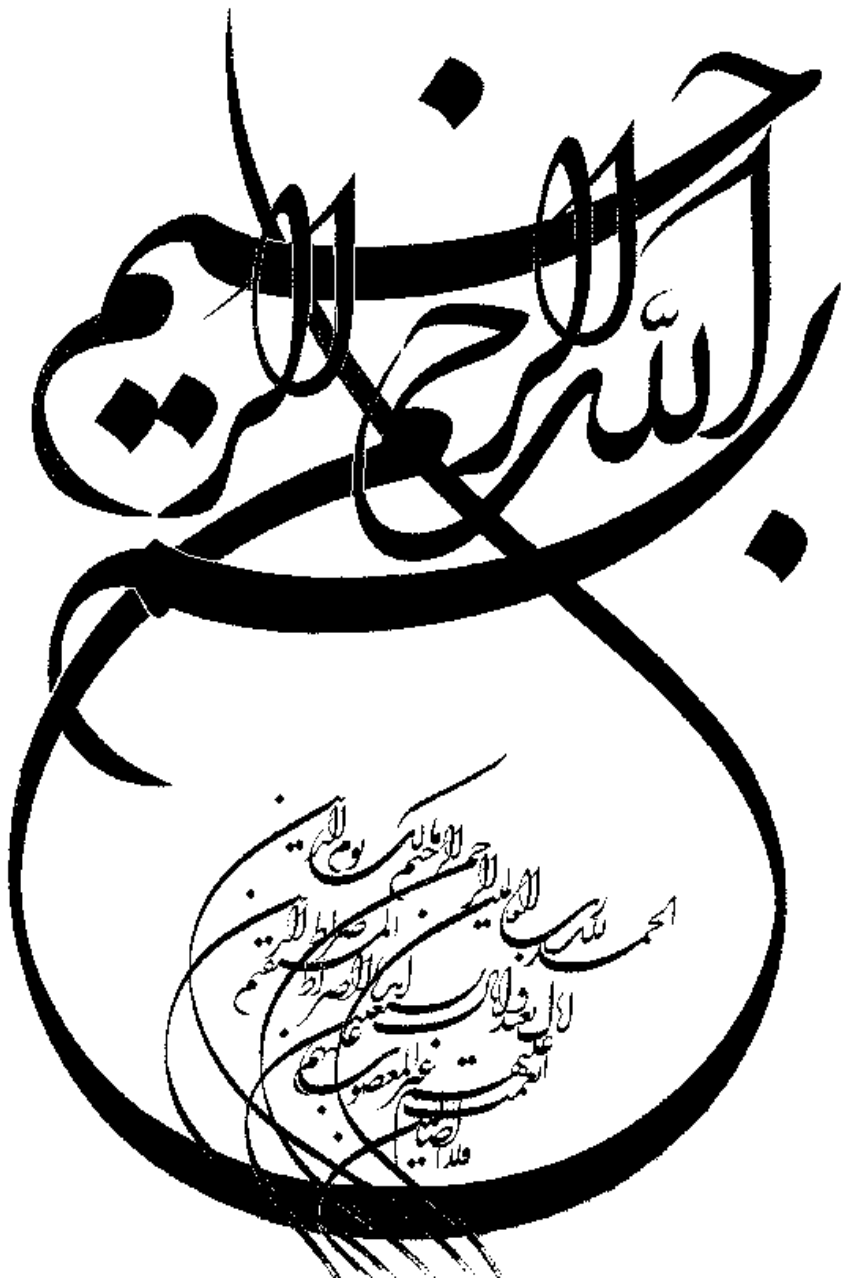 بسم الله الرحمن الرحيم
الحمد لله رب العالمين
الرحمن الرحيم مالك يوم الدين
اياك نعبد و اياك نستعين
اهدنا الصراط المستقيم صراط الذين
انعمت عليهم غير المغضوب عليهم
ولا الضالين